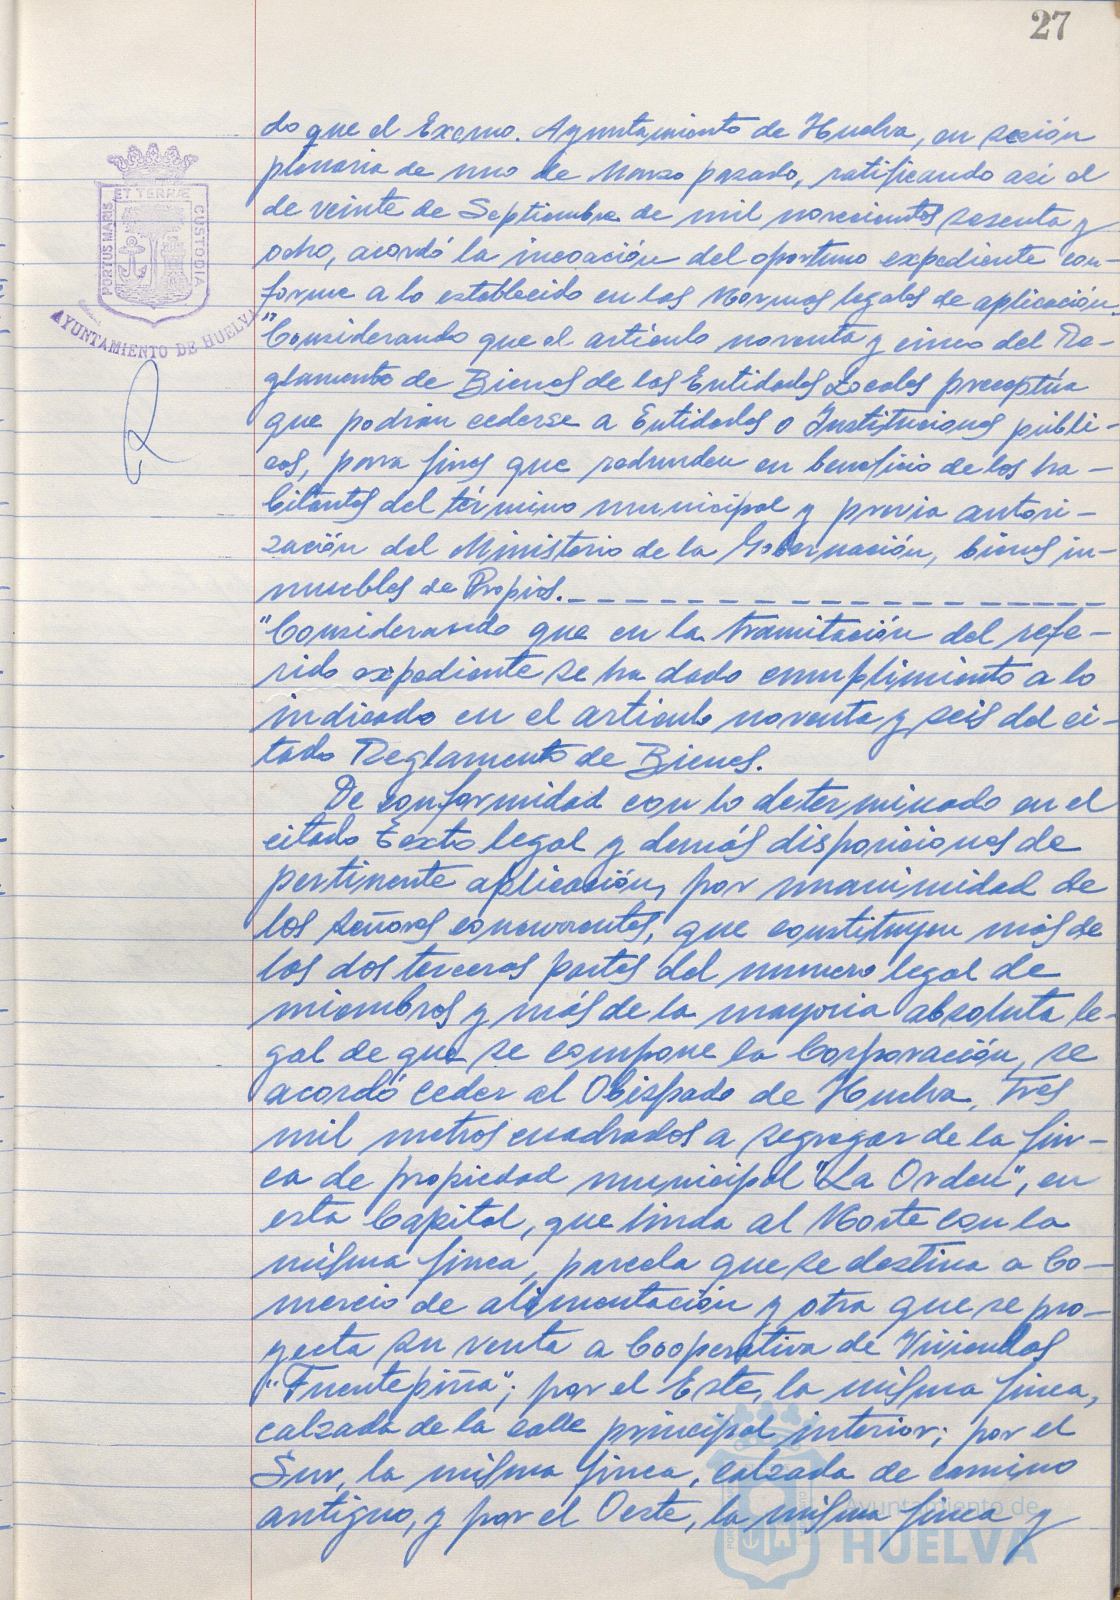 27
do que el Excmo. Ayuntamiento de Huelva, en sesión
plenaria de uno de Marzo pasado, ratificando así el
de veinte de Septiembre de mil novecientos sesenta y
ocho, acordó la incoación del oportuno expediente con-
forme a lo establecido en las Normas legales de aplicación.
"Considerando que el artículo noventa y cinco del Re-
glamento de Bienes de las Entidades Locales preceptúa
que podrán cederse a Entidades o Instituciones públi-
cas, para fines que redunden en beneficio de los ha-
bitantes del término municipal y previa autori-
zación del Ministerio de la Gobernación, bienes in-
muebles de Propios.
"Considerando que en la tramitación del refe-
rido expediente se ha dado cumplimiento a lo
indicado en el artículo noventa y seis del ci-
tado Reglamento de Bienes.
De conformidad con lo determinado en el
citado Texto legal y demás disposiciones de
pertinente aplicación, por unanimidad de
los señores concurrentes, que constituyen más de
las dos terceras partes del numero legal de
miembros y más de la mayoria absoluta le-
gal de que se compone la Corporación, se
acordó ceder al Obispado de Huelva, Tres
mil metros cuadrados a segregar de la fin-
ca de propiedad municipal "La Orden", en
esta Capital, que linda al Norte con la
misma finca, parcela que se destina a Co-
mercio de alimentación y otra que se pro-
yecta su venta a Cooperativa de Viviendas
"Fuentepiña"; por el Este, la misma finca,
calzada de la calle principal interior; por el
Sur, la misma finca, calzada de camino
antiguo, y por el Oeste, la misma finca y
PORTUS MARIS ET TERRÆ CUSTODIA
AYUNTAMIENTO DE HUELVA
Ayuntamiento de
HUELVA